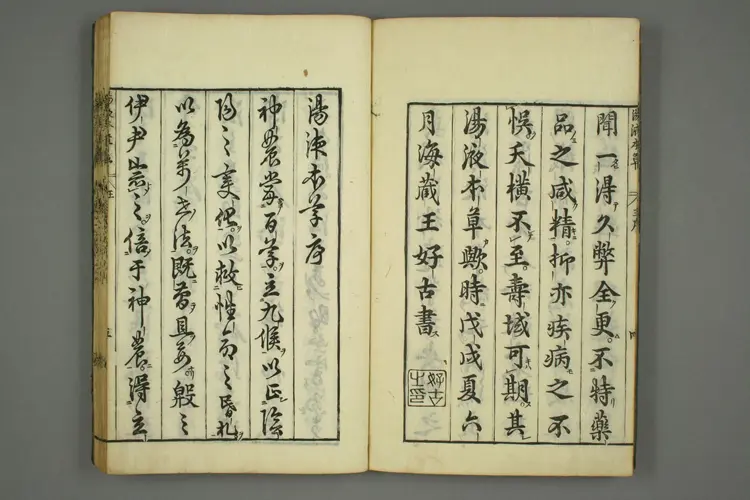 聞一得久弊全更不特藥
品之咸精抑亦疾病之不
悞夭橫不至壽域可期其
湯液本草歟時戊戌夏六
月海藏王好古書
好古之印
湯液本草序
神農嘗百草立九候以正陰
陽之變化以救性命之昏札
以為萬世法既簡且要殷之
伊尹宗之倍于神農得立